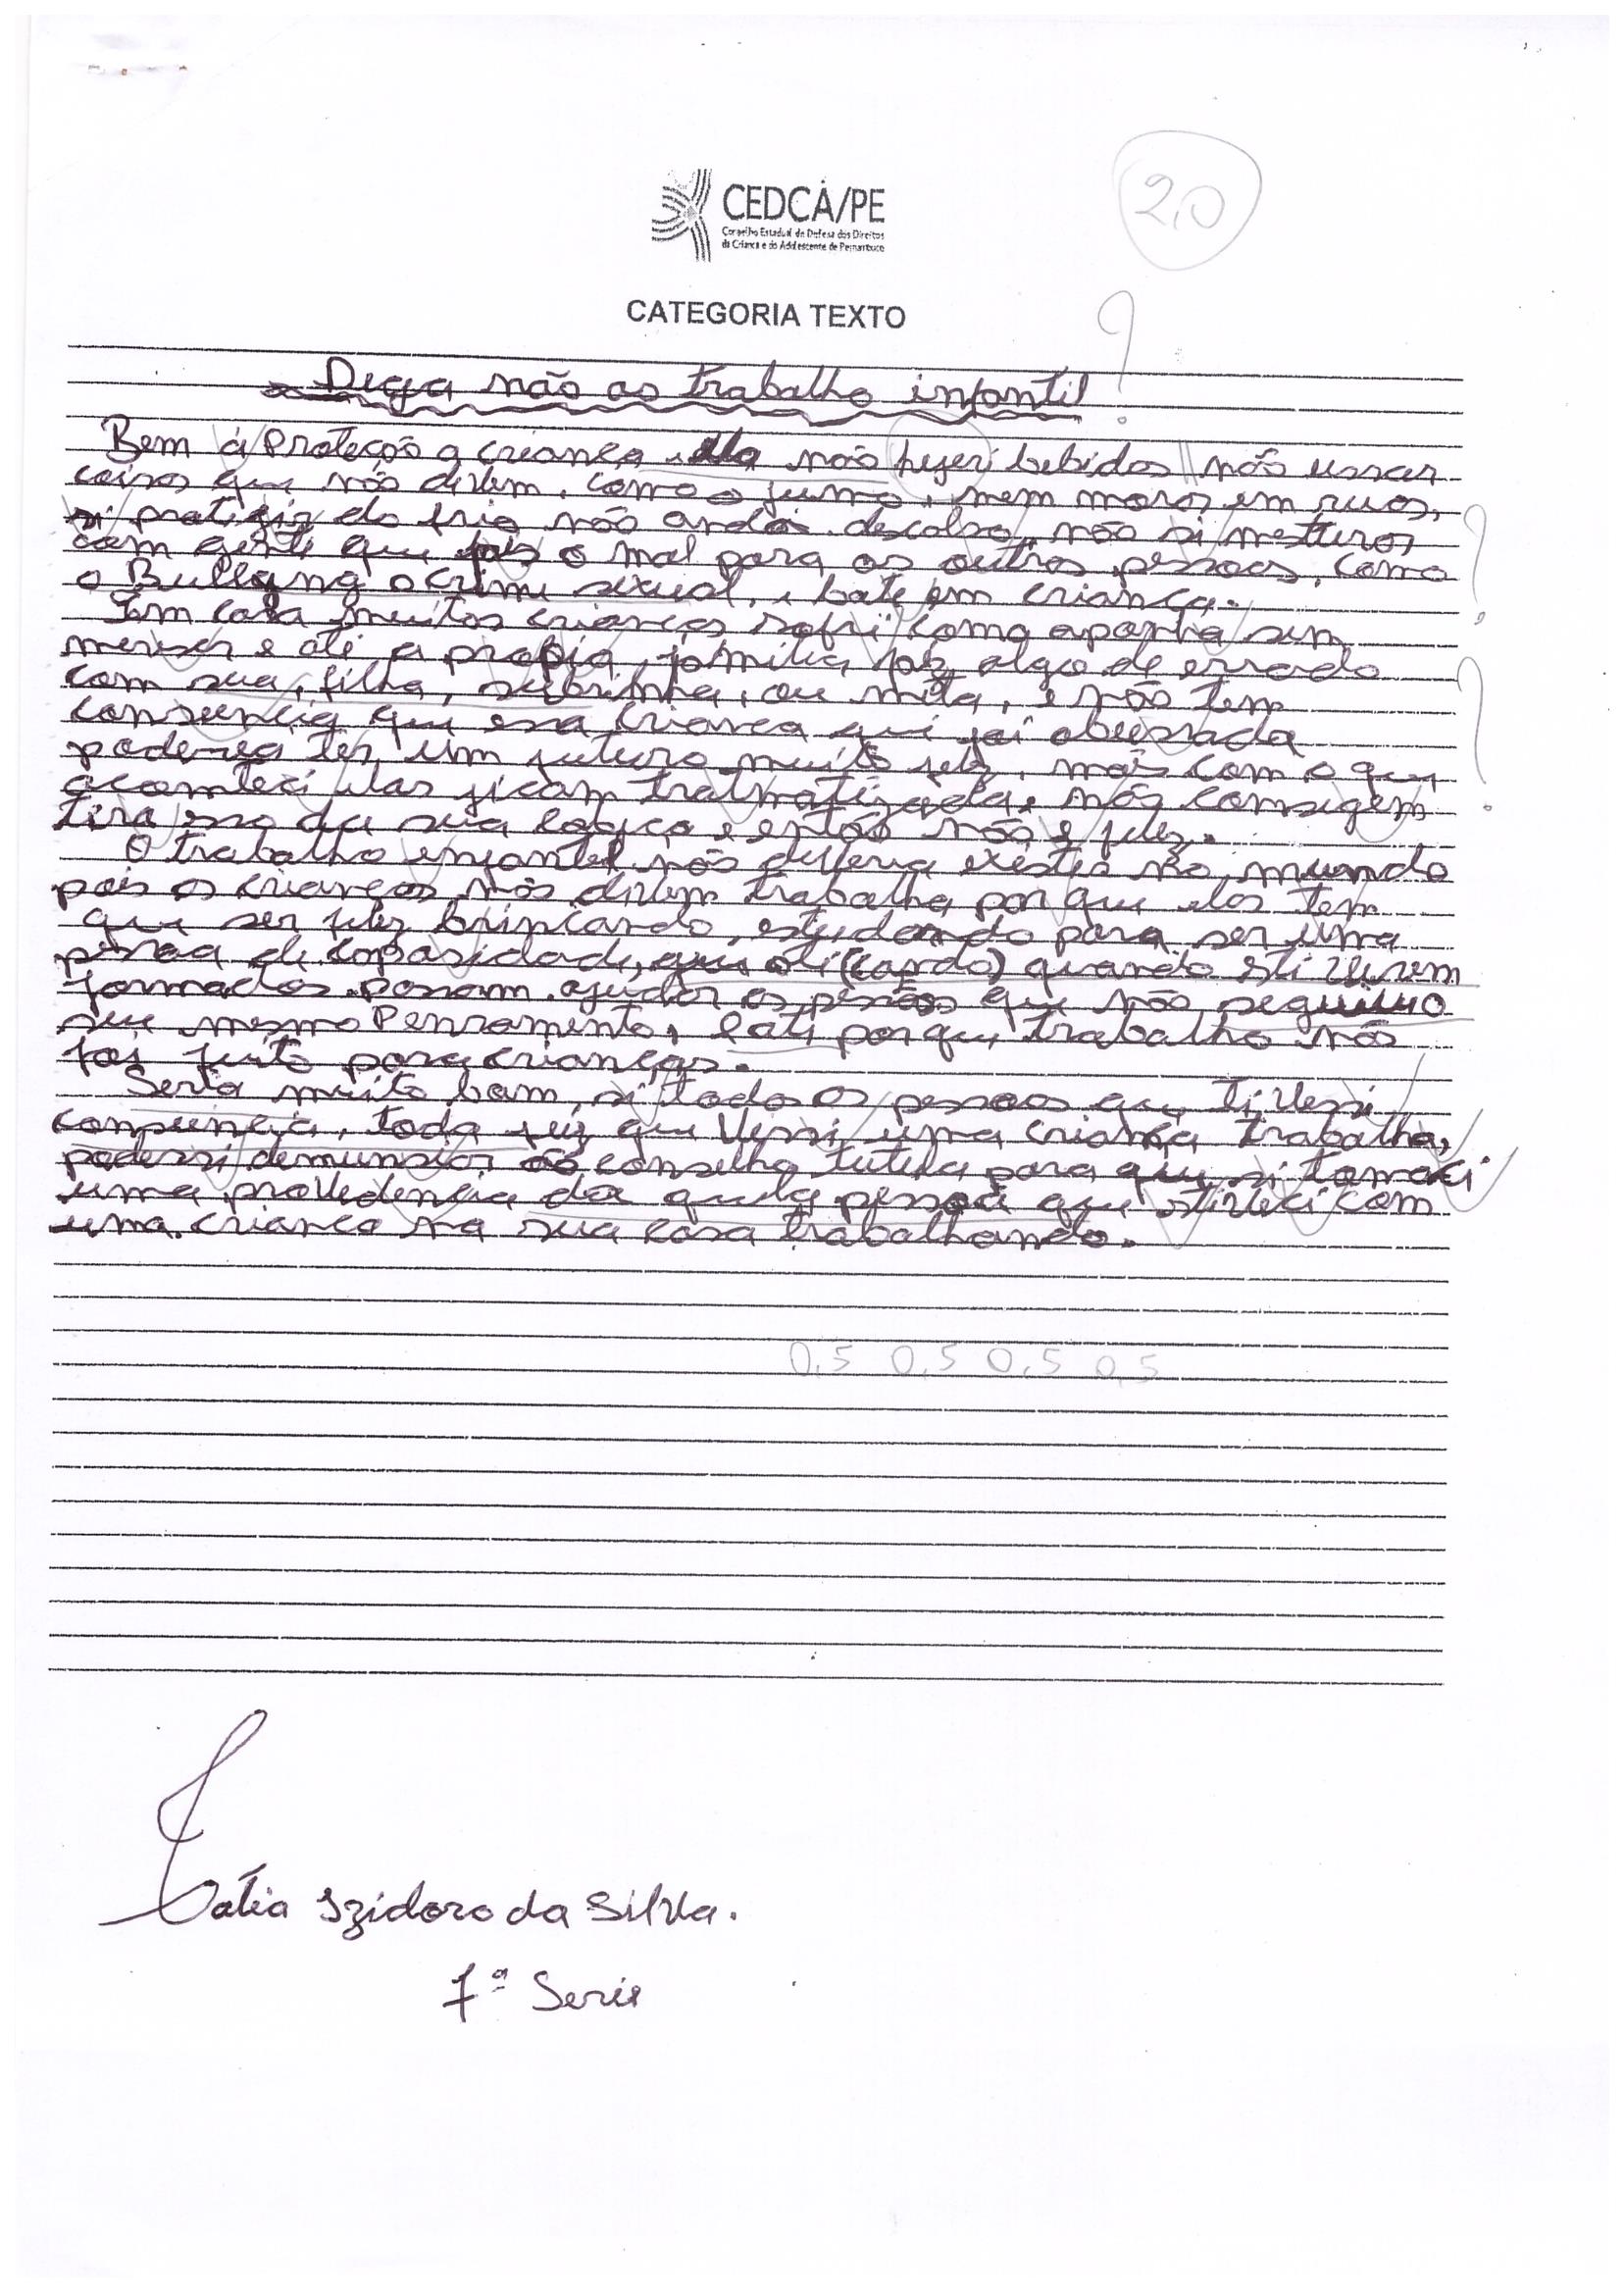 2,0
CEDCA/PE
Conselho Estadual de Defesa dos Direitos
da Criança e do Adolescente de Pernambuco
CATEGORIA TEXTO
?
Diga não ao trabalho infantil
Bem á Proteção a criança ela não bebidas não ussar
coisas que não divem, como o fumo, nem moras em ruas,
si do frio não andar descalso, não si mesturas
com gente que fais o mal para as outras pessoas, como
o crime sexual, e bate em criança.
Tem casa muitas crianças sofri como apanha sem
mereser e até a propia familia faz algo de errado
com sua, filha, subrinha, ou neta, e não tem
consiencia que essa criança qui foi abuzada
poderia ter um futuro muito feliz, mais com o que
aconteci elas ficam tralmatizada, não consigem
tira isso da sua e então não é feliz.
O trabalho enfantil não deveria existir no mundo
pois as crianças não divem trabalha porque elas tem
que ser feliz brincando, estudando para ser uma
pessoa de capasidade, quando sti verem
formadas possam ajudar as pesoas que não
seu mesmo Pensamento, e ati porque trabalho não
foi feito para crianças.
Seria muito bom si todas as pessoas que tivessi
consiencia, toda veiz que Vissi uma criança trabalha,
podessi denunsiar ao conselho tutela para que si tomaci
uma providencia da quela pessoa que stiveci com
uma criança na sua casa trabalhando.
?
?
0,5 0,5 0,5 0,5
Izidoro da Silva.
7ª Serie